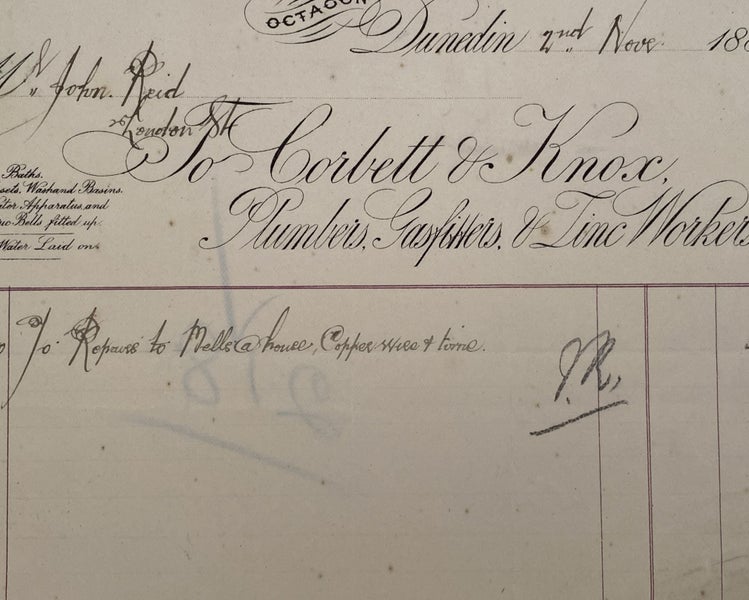 OCTAGON
Dunedin 2nd Nove 188
Mr John Reid
London St
To Corbett & Knox,
Plumbers, Gasfitters, & Zinc Workers
Baths,
Washand Basins.
Apparatus, and
Bells fitted up.
Water Laid on.
To Repairs to Bells @ house, Copper wire & time.
J.R.